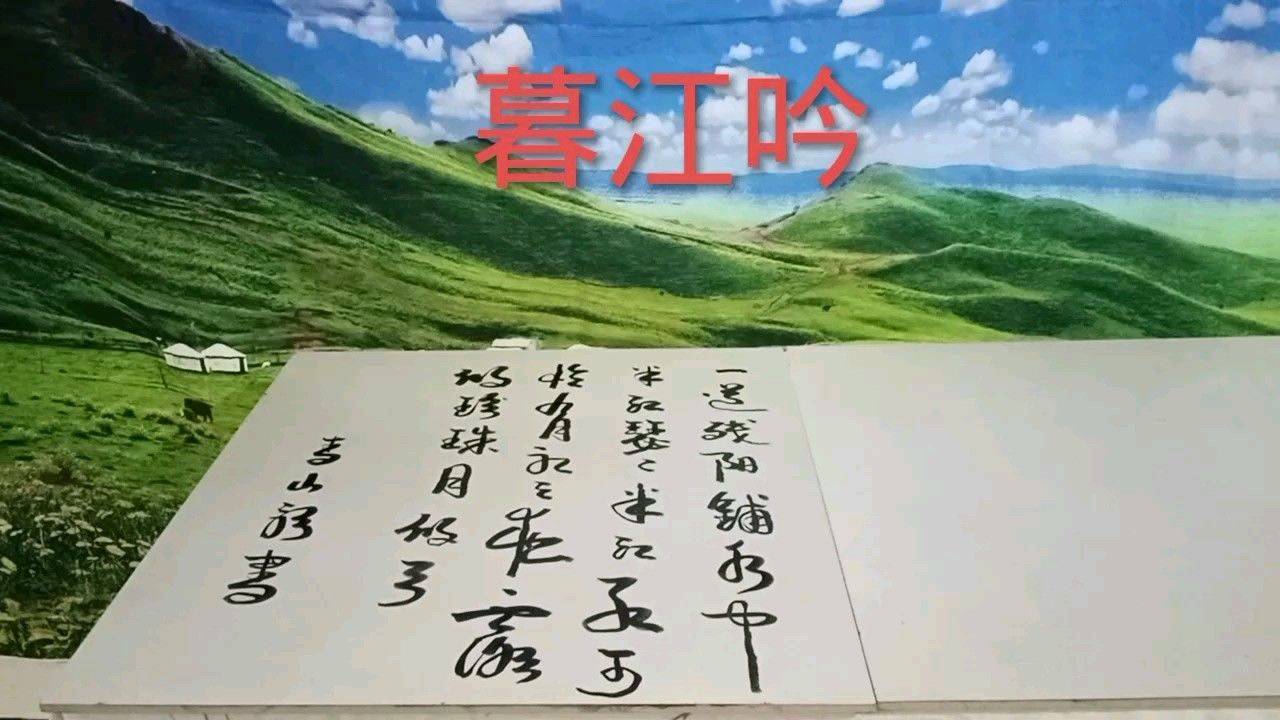 暮江吟
一道残阳铺水中
半江瑟〻半江红可
怜九月初三夜露
似珍珠月似弓
山書